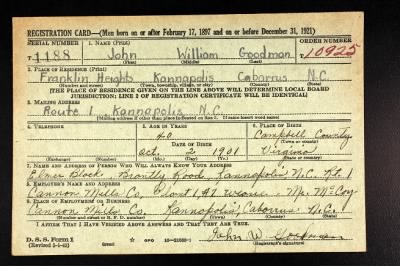 REGISTRATION CARD—(Men born on or after February 17, 1897 and on or before December 31, 1921)
SERIAL NUMBER 1. NAME (Print) ORDER NUMBER
T 1188 John William Goodman T10925
(First) (Middle) (Last)
2. PLACE OF RESIDENCE (Print)
Franklin Heights Kannapolis Cabarrus N.C.
(Number and street) (Town, township, village, or city) (County) (State)
[THE PLACE OF RESIDENCE GIVEN ON THE LINE ABOVE WILL DETERMINE LOCAL BOARD
JURISDICTION; LINE 2 OF REGISTRATION CERTIFICATE WILL BE IDENTICAL]
3. MAILING ADDRESS
Route 1 Kannapolis N.C.
[Mailing address if other than place indicated on line 2. If same insert word same]
4. TELEPHONE 5. AGE IN YEARS 6. PLACE OF BIRTH
40 Campbell County
DATE OF BIRTH (Town or county)
Oct. 2 1901 Virginia
(Exchange) (Number) (Mo.) (Day) (Yr.) (State or country)
7. NAME AND ADDRESS OF PERSON WHO WILL ALWAYS KNOW YOUR ADDRESS
Elmer Block, Brantly Road, Kannapolis, N.C. Rt. 1
8. EMPLOYER'S NAME AND ADDRESS
Cannon Mills Co. Plant 1, Mr. McCoy
9. PLACE OF EMPLOYMENT OR BUSINESS
Cannon Mills Co. Kannapolis, Cabarrus N.C.
(Number and street or R. F. D. number) (Town) (County) (State)
I AFFIRM THAT I HAVE VERIFIED ABOVE ANSWERS AND THAT THEY ARE TRUE.
D. S. S. Form 1 GPO 16—21630-1 John W. Goodman
(Revised 1-1-42) (Registrant's signature)